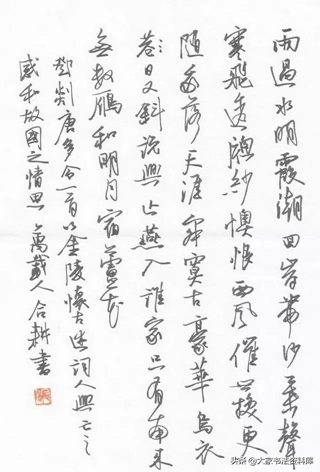 雨過水明霞潮回岸帶沙葉聲
寒飛透窗紗懊恨西風催世換更
隨我落天涯寂寞古豪華烏衣
巷日又斜說興亡燕入誰家只有南來
無數雁和明月宿蘆花
鄧剡唐多令一首以金陵懷古述詞人興亡之
感和故國之情思 萬載人合耕書
头条 @大家书法资料库